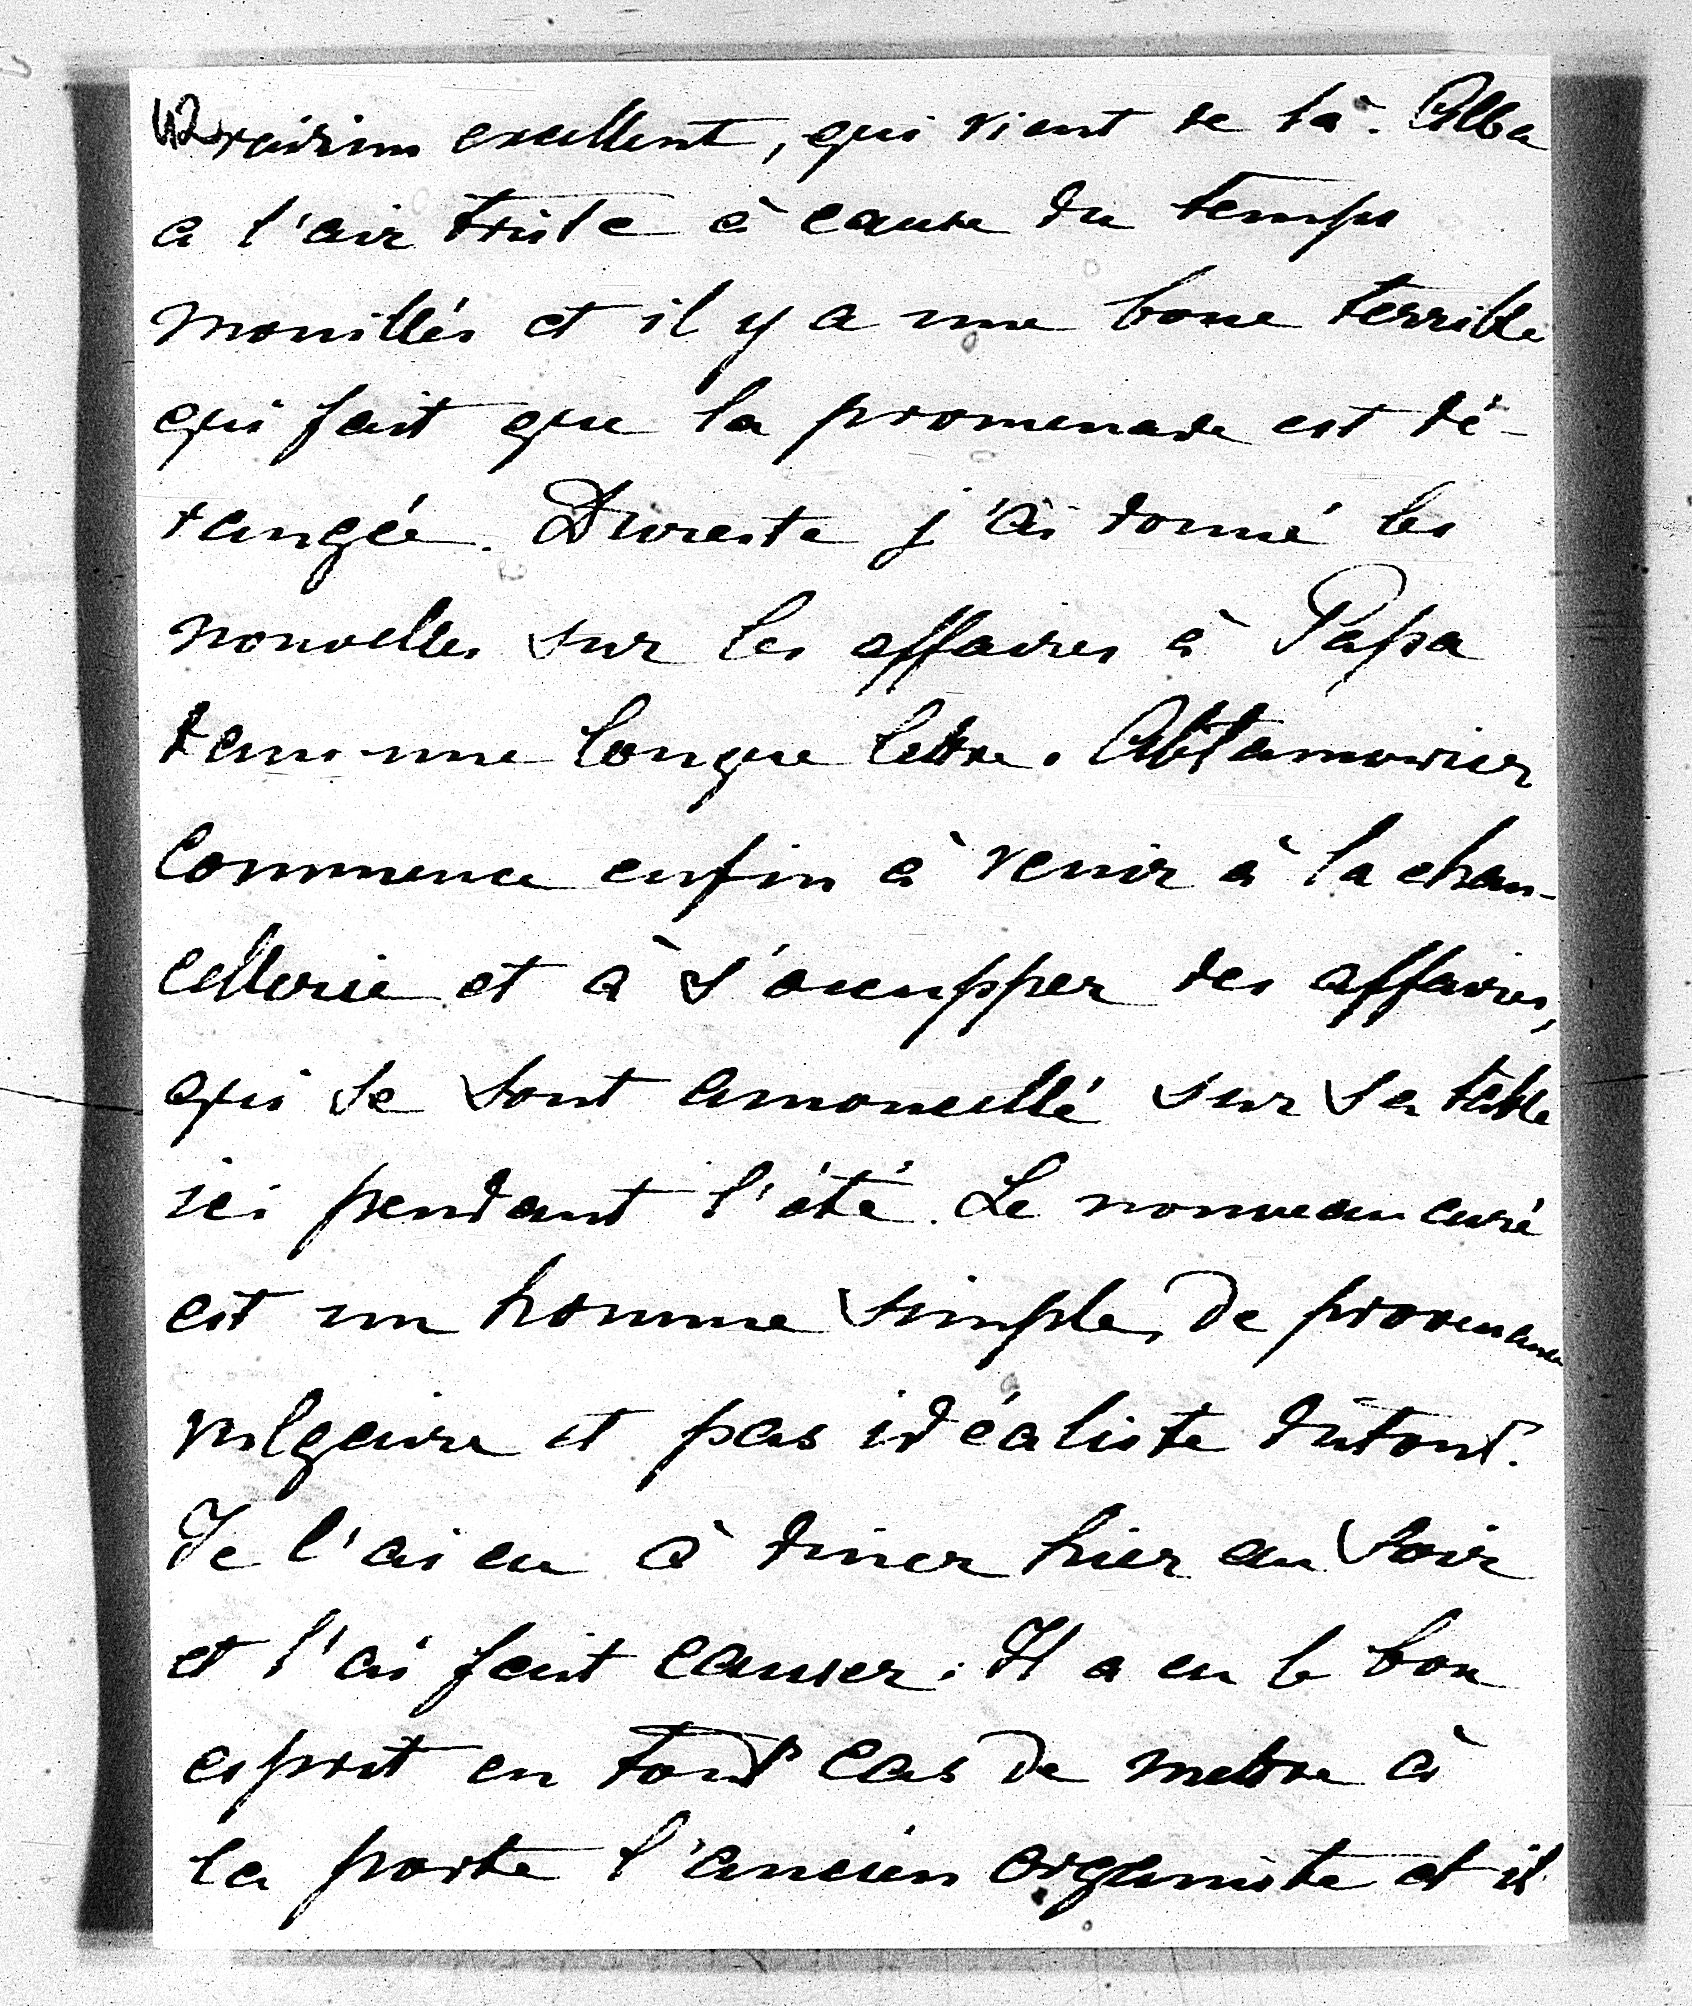 42 raisins excellent, qui vient de là. Alba
a l'air triste à cause du temps
mouillés et il y a une boue terrible
qui fait que la promenade est dé-
rangée. Dureste j'ai donné les
nouvelles sur les affaires à Papa
dans une longue lettre. Abtamowicz
commence enfin à venir à la chan-
cellerie et à s'occupper des affaires,
qui se sont amoncellé sur sa table
ici pendant l'été. Le nouveau curé
est un homme simple, de provenance
vulgaire et pas idéaliste dutout.
Je l'ai eu à diner hier au soir
et l'ai fait causer. Il a eu le bon
esprit en tout cas de mettre à
la porte l'ancien organiste et il